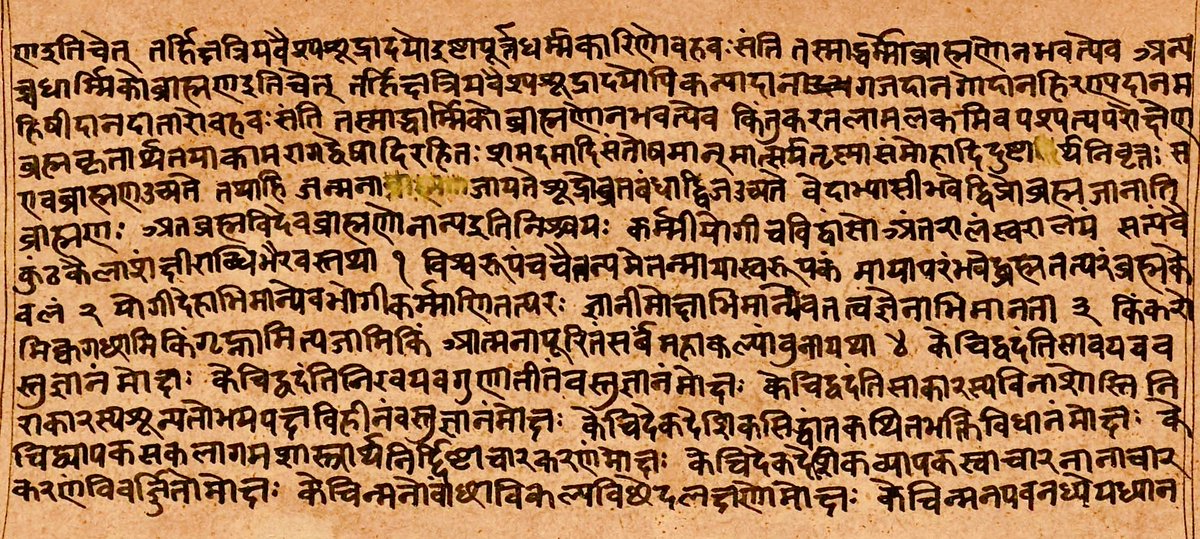 णइतिचेत् तर्हिक्षत्रियवैश्यशूद्रादयोइष्टापूर्त्तधर्म्मकारिणोबहवःसंति तस्माद्धर्म्मोब्राह्मणोनभवत्येव अन्य
च्चधार्म्मिकोब्राह्मणइतिचेत् तर्हिक्षत्रियवैश्यशूद्रादयोपिकन्यादाना गजदानगोदानहिरण्यदानम
हिषीदानदातारोबहवःसंति तस्माद्धार्म्मिकोब्राह्मणोनभवत्येव किंतुकरतलामलकमिवपश्यत्यपरोक्षेण
ब्रह्मकृतार्थतयाकामरागद्वेषादिरहितः शमदमादिसंतोषमान्मात्सर्यतृष्णासंमोहादिदुष्टा र्यनिवृत्तः स
एवब्राह्मणउच्यते तथाहि जन्मना जायतेशूद्रोव्रतबंधाद्द्विजउच्यते वेदाभ्यासीभवेद्विप्रोब्रह्मजानाति
ब्राह्मणः अतब्रह्मविदेवब्राह्मणोनान्यइतिनिश्चयः कर्म्मीयोगीचविद्वांसोअंतरालंस्वरालयं सत्यंवै
कुंठकैलाशंक्षीराब्धिभैरवस्तथा १ विश्वरूपंचचैतन्यमेतन्मायास्वरूपकं मायापरंभवेद्ब्रह्मतत्परंब्रह्मके
वलं २ योगीदेहाभिमान्येवभोगीकर्म्माणितत्परः ज्ञानीमोक्षाभिमान्येवतत्वज्ञेनाभिमानता ३ किंकरो
मिक्वगछामिकिंगृह्णामित्यजामिकिं आत्मनापूरितंसर्वमहाकल्पांवुनायथा ४ केचिद्वदंतिसावयवव
स्तुज्ञानंमोक्षः केचिद्वदंतिनिरवयवगुणातीतवस्तुज्ञानंमोक्षः केचिद्वदंतिसाकारस्यविनाशोस्ति नि
राकारस्यशून्यतोभयपक्षविहीनंवस्तुज्ञानंमोक्षः केचिदेकदेशिकसिद्धांतकथितभक्तिविधानंमोक्षः के
चिद्व्यापकसकलागमशास्त्रार्थनिर्द्दिष्टाचारकरणंमोक्षः केचिदेकदेशिकव्यापकस्वाचारनानाचार
करणविवर्ज्जितोमोक्षः केचिन्मनोवांछाविकल्पविछेदलक्षणोमोक्षः केचिन्मनपवनध्येयध्यान